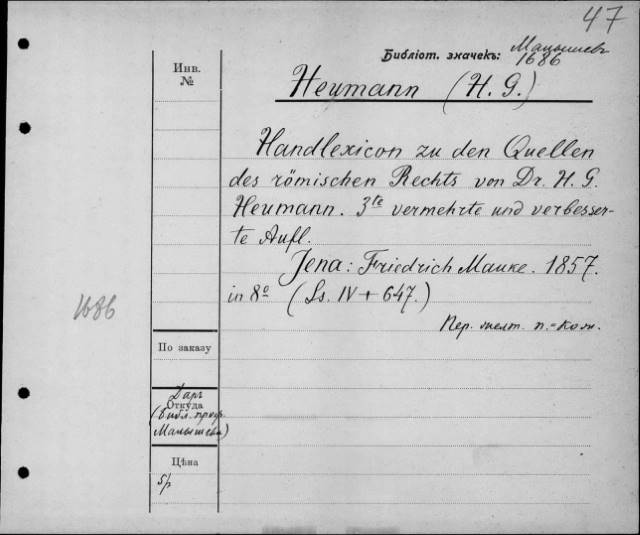 47
Малышевъ
Библіот. значекъ: 1686
Инв.
№
Heumann (H. G.)
Handlexicon zu den Quellen
des römischen Rechts von Dr. H. G.
Heumann. 3te vermehrte und verbesser-
te Aufl.
Jena: Friedrich Mauke. 1857.
in 8º (Ss. IV + 647.)
1686
Пер. желт. п.-кож.
По заказу
Даръ
Откуда
(библ. проф.
Малышева)
Цѣна
5р